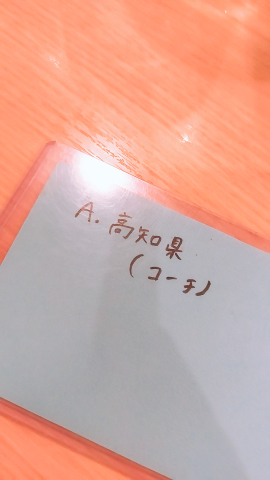 A. 高知県
(コーチ)